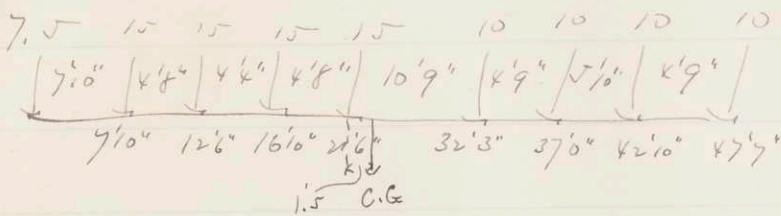 7.5 15 15 15 15 10 10 10 10
7'10" 4'8" 4'4" 4'8" 10'9" 4'9" 5'10" 4'9"
7'10" 12'6" 16'10" 21'6" 32'3" 37'0" 42'10" 47'7"
1.5 C.G.